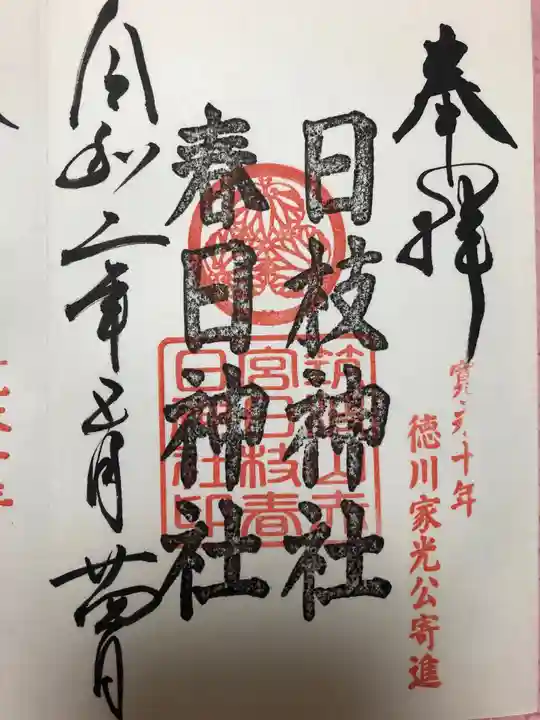 奉拝
寛永十年
徳川家光公寄進
日枝神社
春日神社
筑波山赤
宮日枝春
日神社印
令和二年五月廿四日